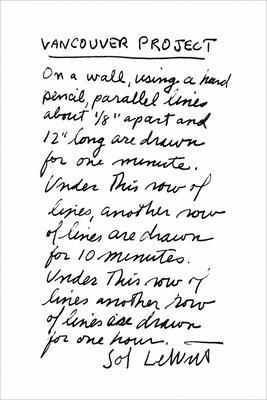 VANCOUVER PROJECT
On a wall, using a hard
pencil, parallel lines
about 1/8" apart and
12" long are drawn
for one minute.
Under this row of
lines, another row
of lines are drawn
for 10 minutes.
Under this row of
lines another row
of lines are drawn
for one hour.
Sol LeWitt